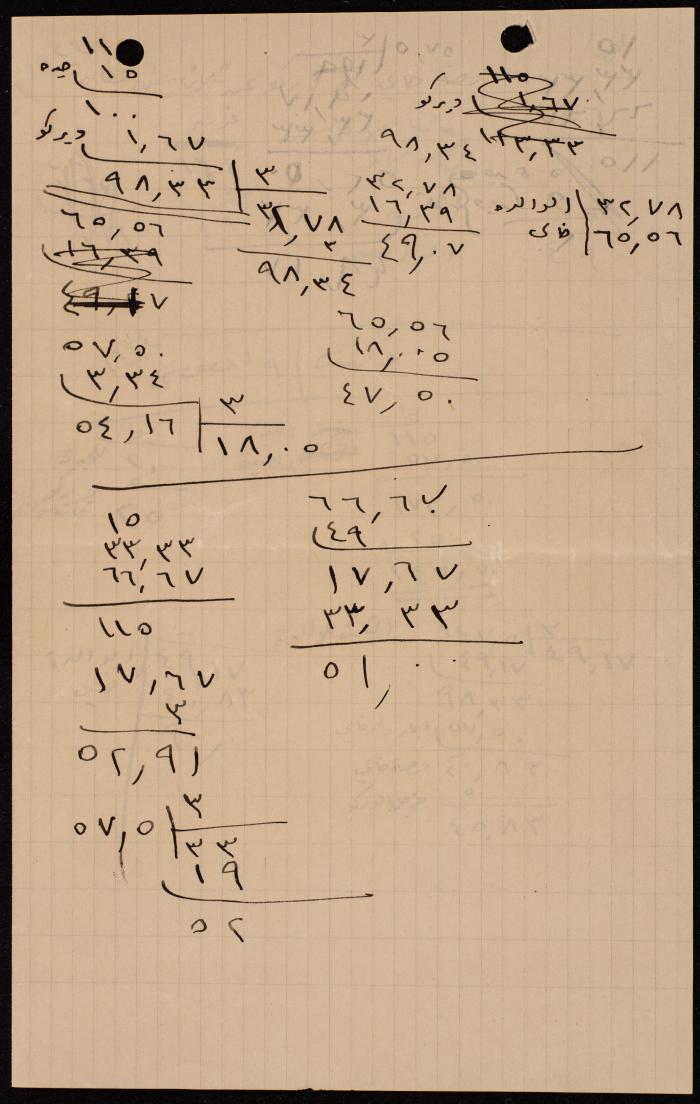 ١١
١٥ جده
١٠٠
١,٦٧
٩٨,٣٣ | ٣
٣٢,٧٨
٣
٩٨,٣٤
٦٥,٥٦
١٦,٣٩
٤٩,١٧
٥٧,٥٠
٣,٣٤
٥٤,١٦ | ٣
١٨,٠٥
١١٥
١,٦٧
١١٣,٣٣
٩٨,٣٤
٣٢,٧٨
١٦,٣٩
٤٩,٠٧
الوالده | ٣٢,٧٨
٦٥,٥٦
٦٥,٥٦
١٨,٠٥
٤٧,٥٠
١٥
٣٣,٣٣
٦٦,٦٧
١١٥
١٧,٦٧
٣
٥٢,٩١
٥٧,٥ | ٣
٣ ٣
١٩
٥٢
٦٦,٦٧
٤٩
١٧,٦٧
٣٣,٣٣
٥١,٠٠